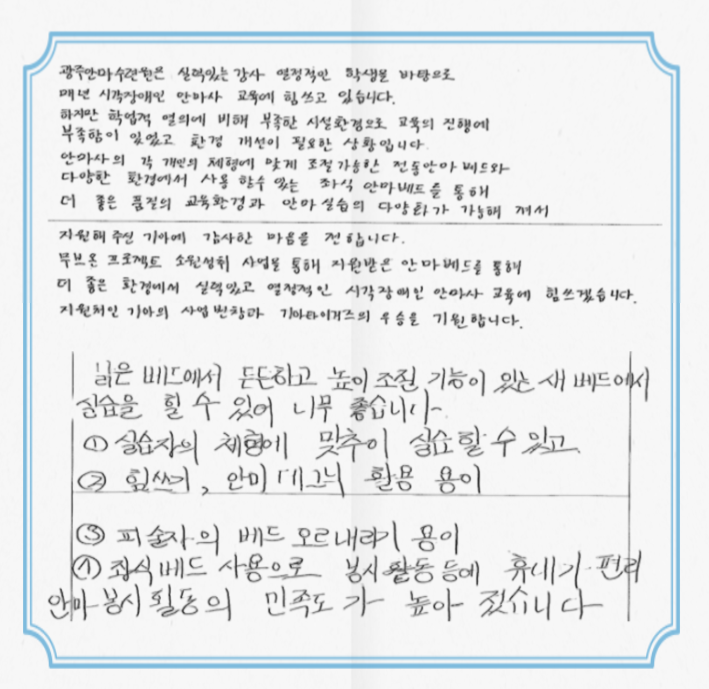 광주안마수련원은 실력있는 강사 열정적인 학생을 바탕으로
매년 시각장애인 안마사 교육에 힘쓰고 있습니다.
하지만 학업적 열의에 비해 부족한 시설환경으로 교육의 진행에
부족함이 있었고 환경 개선이 필요한 상황입니다.
안마사의 각 개인의 체형에 맞게 조절가능한 전동안마 베드와
다양한 환경에서 사용 할수 있는 좌식 안마베드를 통해
더 좋은 품질의 교육환경과 안마 실습의 다양화가 가능해 져서
지원해 주신 기아에 감사한 마음을 전합니다.
무브온 프로젝트 소원성취 사업을 통해 지원받은 안마베드를 통해
더 좋은 환경에서 실력있고 열정적인 시각장애인 안마사 교육에 힘쓰겠습니다.
지원처인 기아의 사업번창과 기아타이거즈의 우승을 기원합니다.
낡은 베드에서 든든하고 높이 조절 기능이 있는 새 베드에서
실습을 할 수 있어 너무 좋습니다.
① 실습자의 체형에 맞추어 실습할 수 있고
② 힘쓰기, 안마 테크닉 활용 용이
③ 피술자의 베드 오르내리기 용이
④ 좌식베드 사용으로 봉사활동 등에 휴대가 편리
안마봉사활동의 만족도가 높아 졌습니다